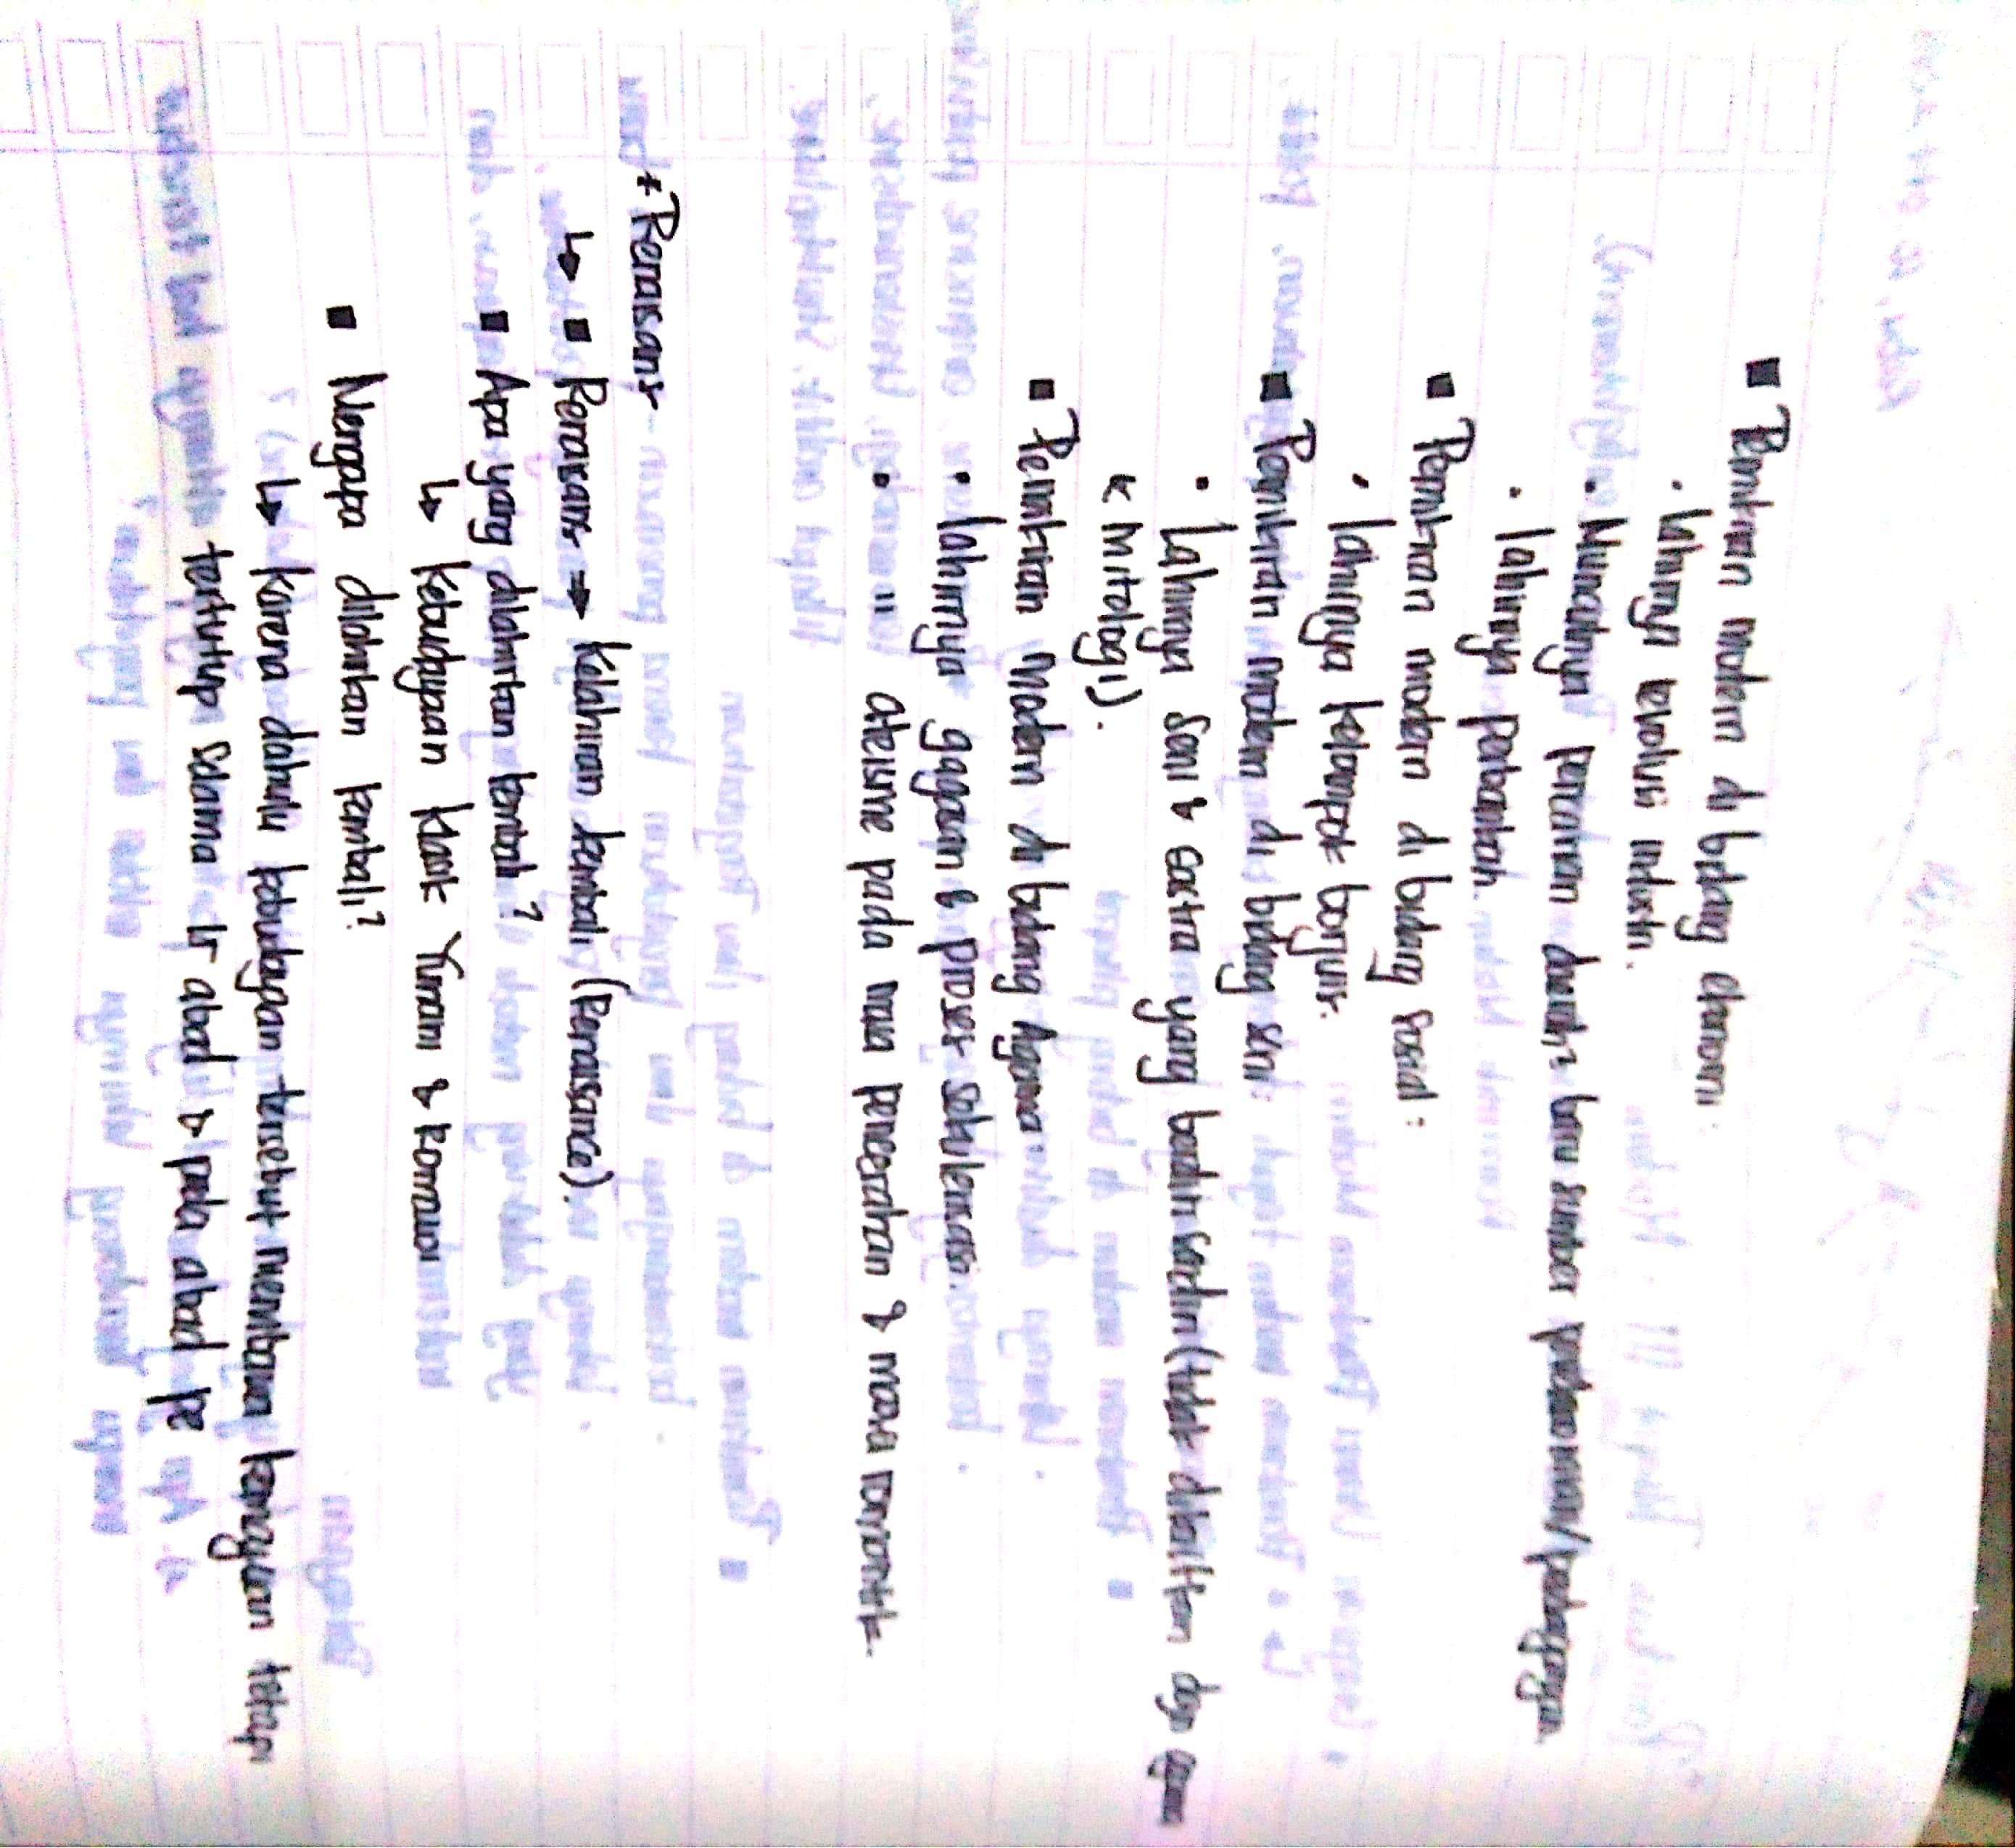 ■ Pemikiran modern di bidang ekonomi
• lahirnya revolusi industri.
• Munculnya penemuan daerah2 baru sumber perekonomian/perdagangan
• lahirnya perbankan.
■ Pemikiran modern di bidang sosial :
• lahirnya kelompok borjuis.
■ Pemikiran modern di bidang seni
• Lahirnya seni & sastra yang berdiri sendiri (tidak dikaitkan dgn agama
& mitologi).
■ Pemikiran modern di bidang Agama
• lahirnya gagasan & proses sekulerisasi.
• " ateisme pada masa pencerahan & masa romantik
+ Renaisans
↳ ■ Renaisans → Kelahiran kembali (Renaisance).
■ Apa yang dilahirkan kembali ?
↳ kebudayaan klasik Yunani & Romawi
■ Mengapa dilahirkan kembali?
↳ karena dahulu kebudayaan tersebut membawa kemajuan tetapi
tertutup selama 15 abad & pada abad ke